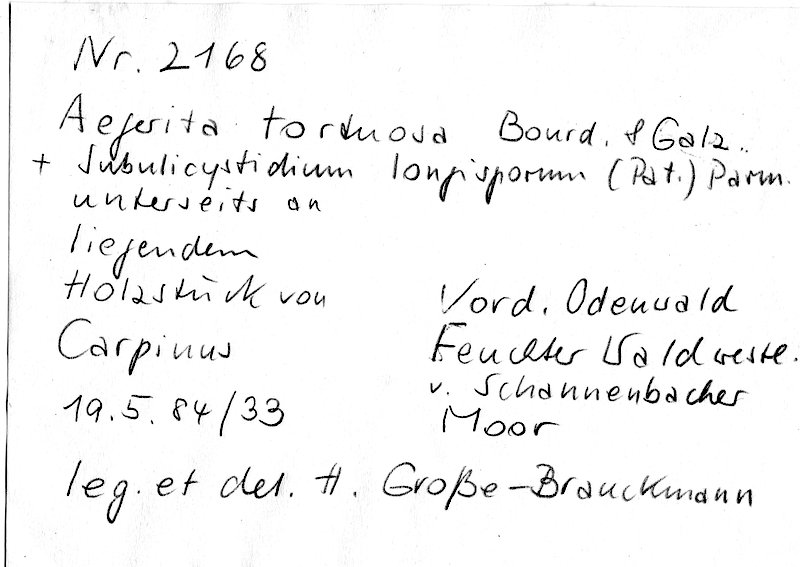 Nr. 2168
Aegerita tortuosa Bourd. & Galz.
+ Subulicystidium longisporum (Pat.) Parm.
unterseits an
liegendem
Holzstück von
Carpinus
19.5.84/33
Vord. Odenwald
Feuchter Wald westl.
v. Schannenbacher
Moor
leg. et det. H. Große-Brauckmann